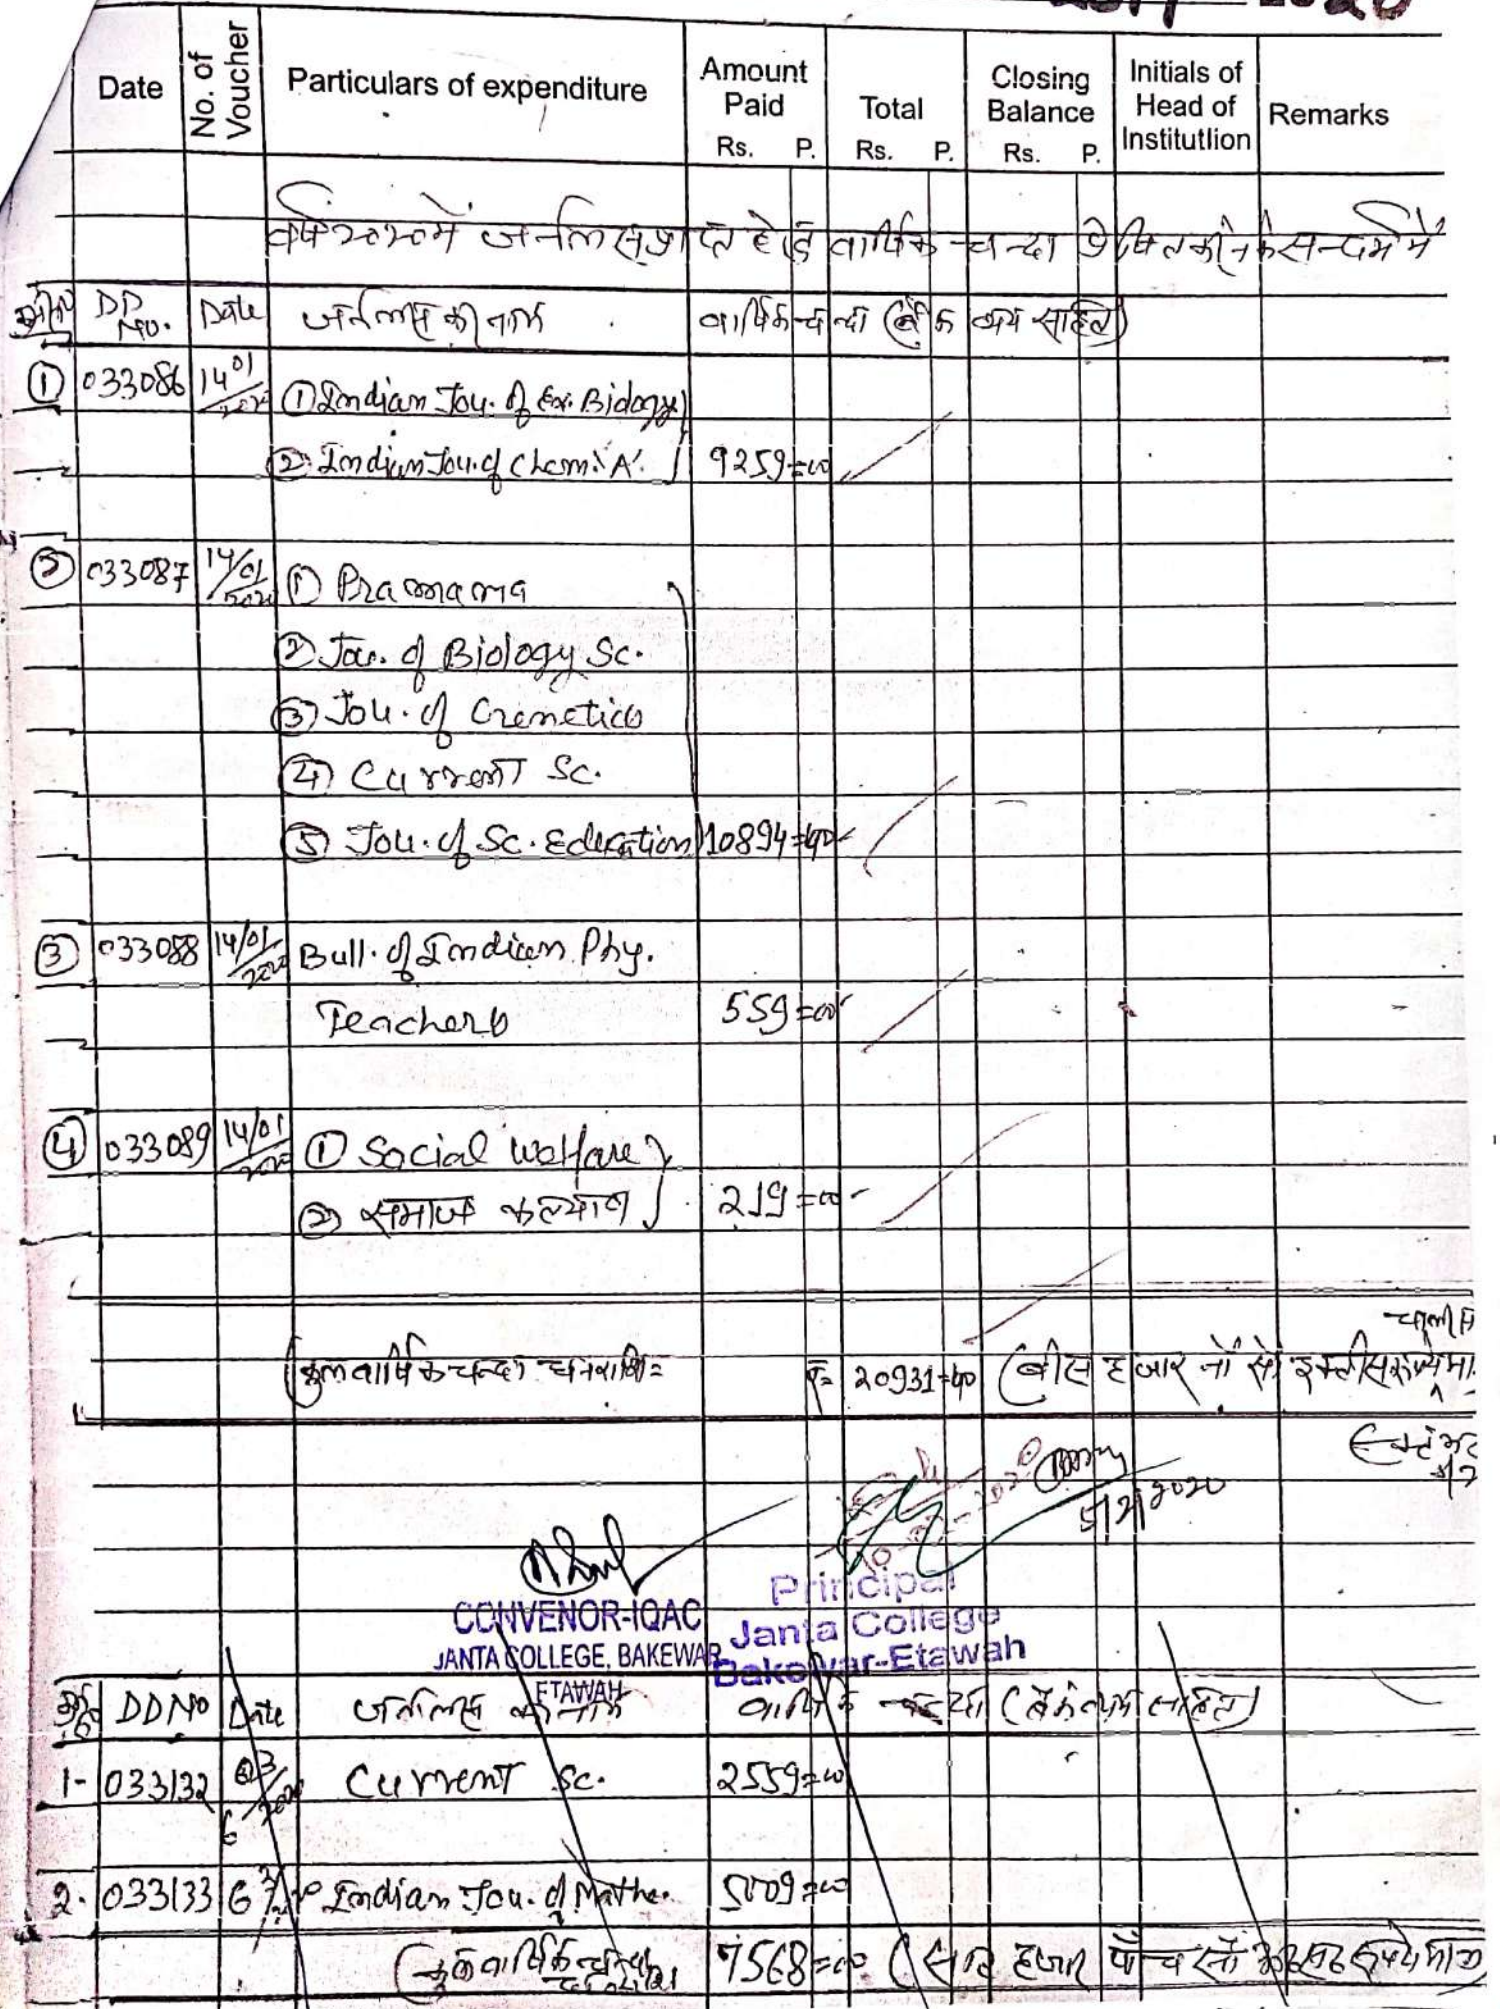 2020
Date No. of Voucher Particulars of expenditure Amount Paid Rs. P. Total Rs. P. Closing Balance Rs. P. Initials of Head of Institutlion Remarks
वर्ष २०२० में जर्नल्स प्राप्त हेतु वार्षिक चन्दा प्रेषित करने के सन्दर्भ में
DD No. Date जर्नल्स का नाम वार्षिक चन्दा (बैंक व्यय सहित)
① 033086 14/01/2020 ① Indian Jou. of Ex. Biology
② Indian Jou. of Chem. 'A'. 9259=00
② 033087 14/01/2020 ① Pramana
② Jou. of Biology Sc.
③ Jou. of Genetics
④ Current Sc.
⑤ Jou. of Sc. Education 10894=40
③ 033088 14/01/2020 Bull. of Indian Phy.
Teachers 559=00
④ 033089 14/01/2020 ① Social Welfare
② समाज कल्याण 219=00
कुल वार्षिक चन्दा धनराशि= रु= 20931=40 (बीस हजार नौ सौ इक्तीस रूपये
5/2/2020
CONVENOR-IQAC
JANTA COLLEGE, BAKEWAR
ETAWAH
Principal
Janta College
Bakewar-Etawah
DD No Date जर्नल्स का नाम वार्षिक चन्दा (बैंक व्यय सहित)
1- 033132 Current Sc. 2559=00
2. 033133 Indian Jou. of Mathe. 5009=00
(कुल वार्षिक चन्दा 7568=00 (सात हजार पाँच सौ अड़सठ रूपये मात्र